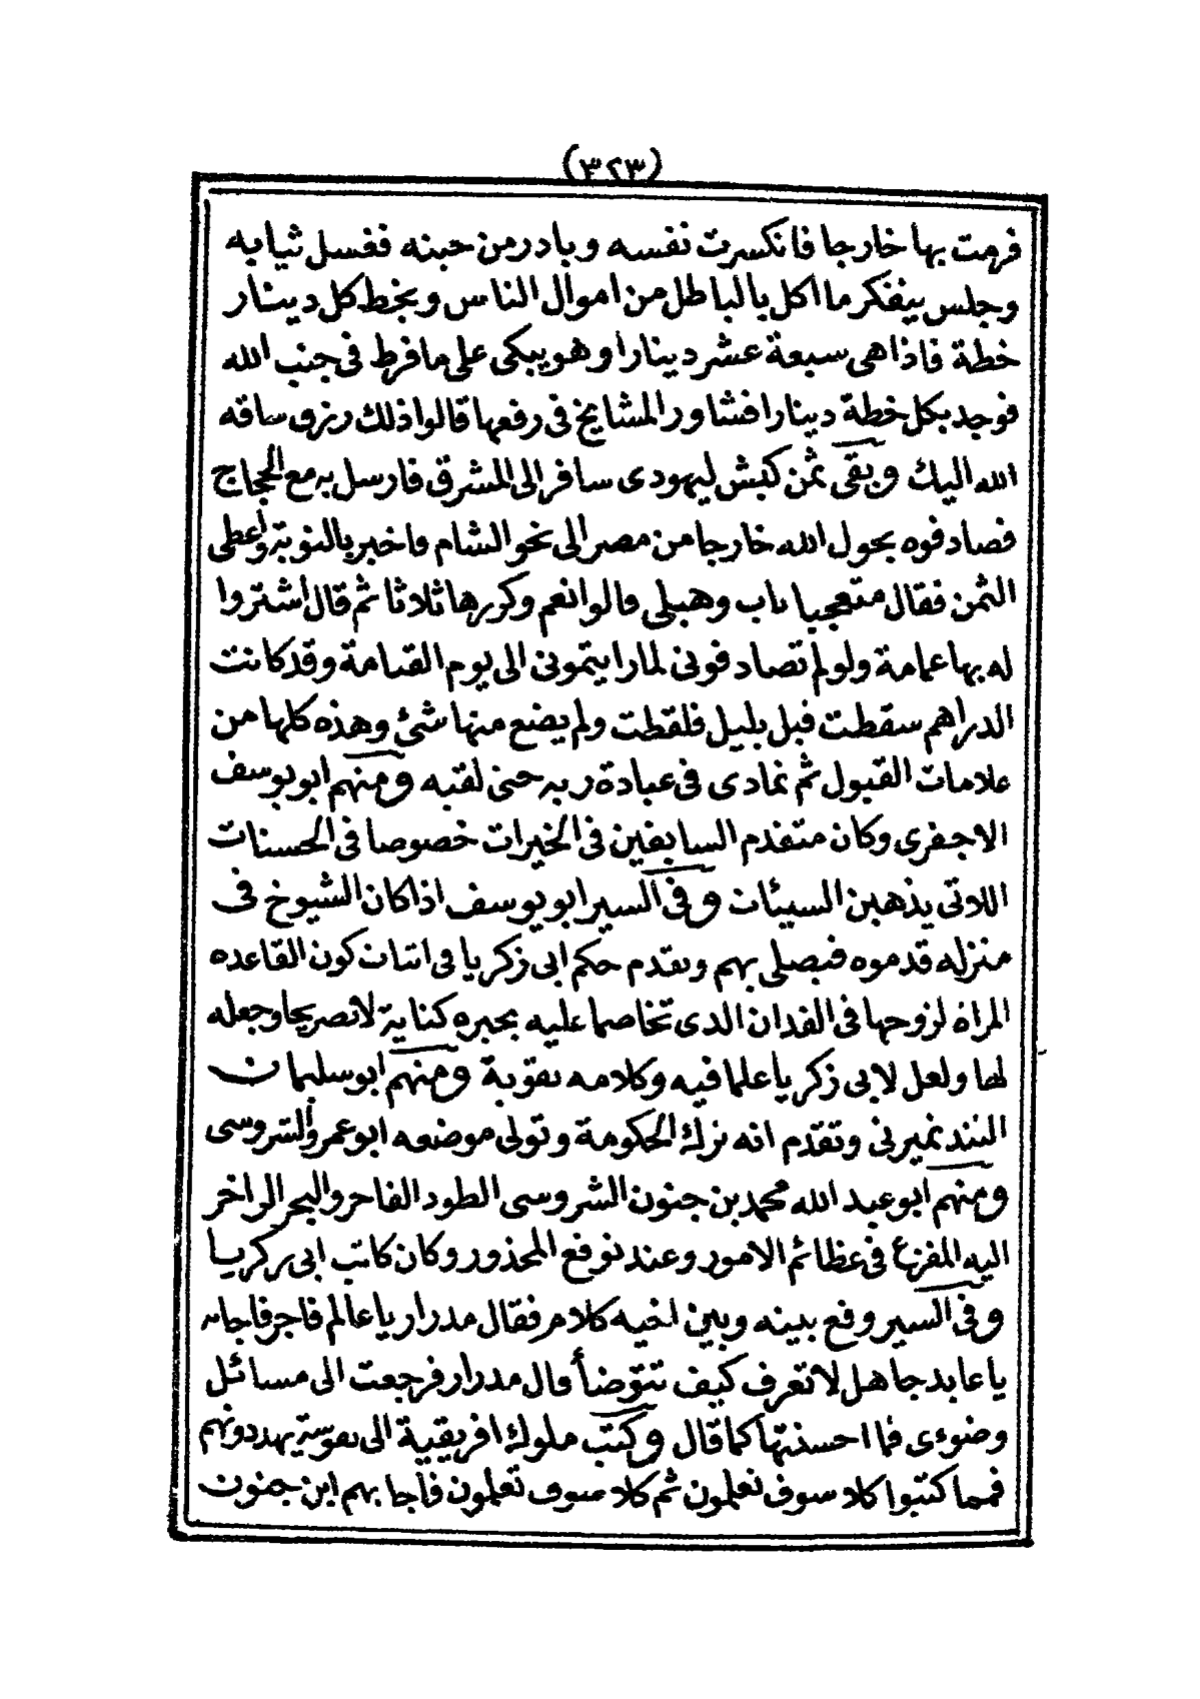 (٣٢٣)
فرمت بها خارجا فانكسرت نفسه وبادر من حينه فغسل ثيابه
وجلس يتفكر ما اكل بالباطل من اموال الناس ويخط كل دينار
خطة فاذا هى سبعة عشر دينارا وهو يبكى على ما فرط فى جنب الله
فوجد بكل خطة دينارا فشاور المشايخ فى رفعها قالوا ذلك رزق ساقه
الله اليك وبقى ثمن كبش ليهودى سافر الى المشرق فارسل به مع الحجاج
فصادفوه بحول الله خارجا من مصر الى نحو الشام واخبر بالتوبة وأعطى
الثمن فقال متعجبا تاب وهبلى قالوا نعم وكررها ثلاثا ثم قال أشتروا
له بها عمامة ولو لم تصادفونى لما رايتمونى الى يوم القيامة وقد كانت
الدراهم سقطت قبل بليل فلقطت ولم يضع منها شئ وهذه كلها من
علامات القبول ثم تمادى فى عبادة ربه حتى لقيه ومنهم ابو يوسف
الاجفرى وكان متقدم السابقين فى الخيرات خصوصا فى الحسنات
اللاتى يذهبن السيئات وفى السير ابو يوسف اذا كان الشيوخ فى
منزله قدموه فيصلى بهم وتقدم حكم ابى زكريا فى اتيان كون القاعده
المراة لزوجها فى الفدان الذى تخاصما عليه بجبره كناية لا تصريحا وجعله
لها ولعل لابى زكريا علما فيه وكلامه تقوية ومنهم ابو سليمان
التندنميرنى وتقدم انه ترك الحكومة وتولى موضعه ابو عمرو الشروسى
ومنهم ابو عبد الله محمد بن جنون الشروسى الطود الفاخر والبحر الزاخر
اليه المفزع فى عظائم الامور وعند توقع المحذور وكان كاتب ابى زكريا
وفى السير وقع بينه وبين اخيه كلام فقال مدرار يا عالم فاجر فاجابه
يا عابد جاهل لا تعرف كيف تتوضأ قال مدرار فرجعت الى مسائل
وضوءى فما احسنتها كما قال وكتب ملوك افريقية الى نفوسة يهددونهم
فمما كتبوا كلا سوف تعلمون ثم كلا سوف تعلمون فأجابهم ابن جنون